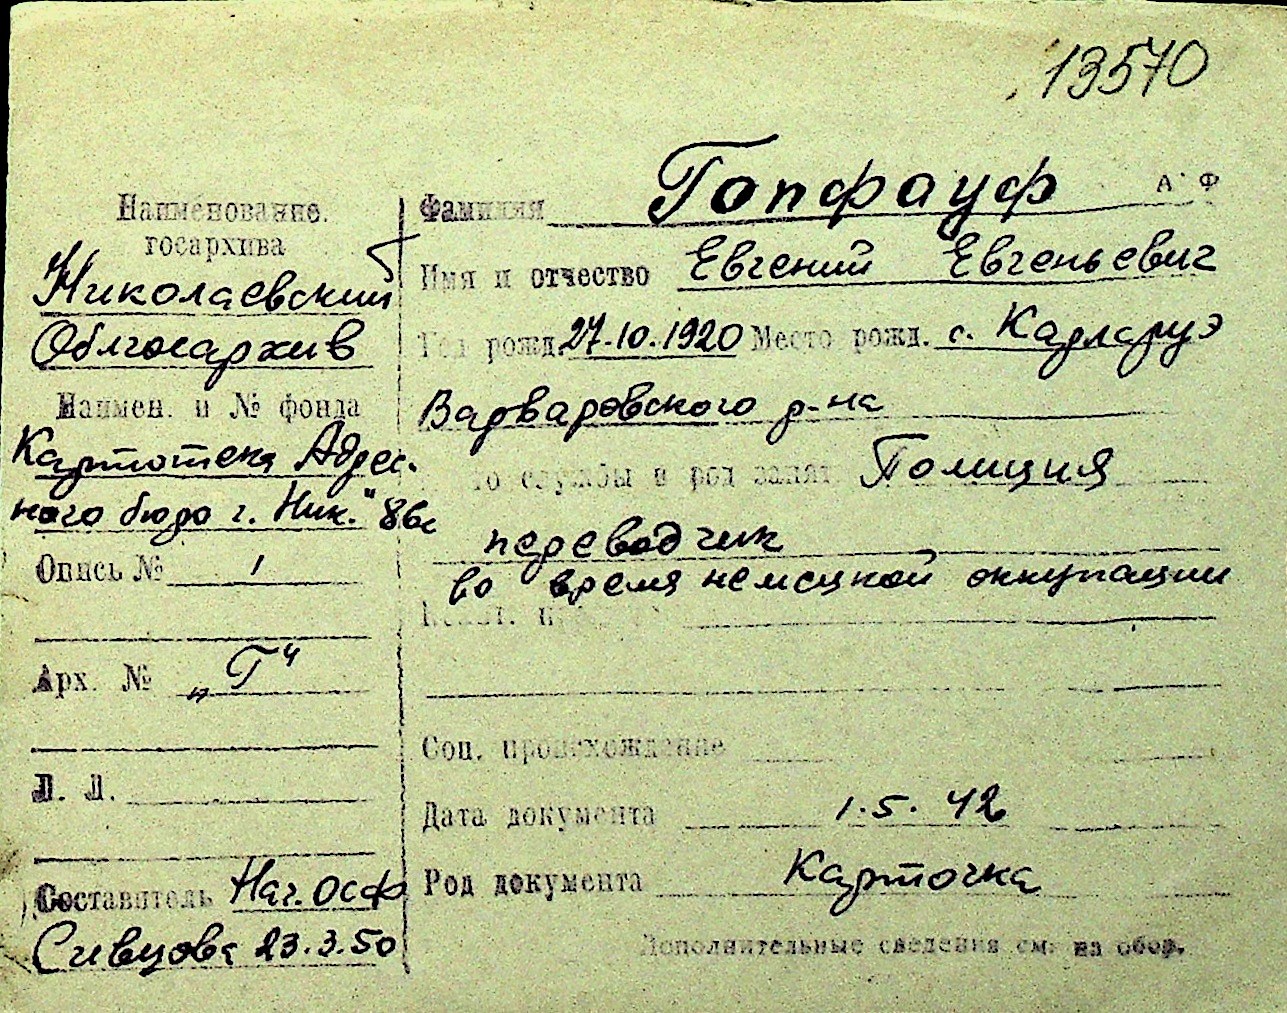 13570
Наименование
госархива
Николаевский
Облгосархив
Наимен. и № фонда
Картотека Адрес-
ного бюро г. Ник." 86с
Опись № 1
Арх. № „Г“
Л. Л.
Составитель Нач. ОСФ
Сивцова 23.3.50
Фамилия Гопфауф А Ф
Имя и отчество Евгений Евгеньевич
Год рожд. 27.10.1920 Место рожд. с. Карлсруэ
Варваровского р-на
то службы и род занят Полиция
переводчик
во время немецкой оккупации
Соц. происхождение
Дата документа 1.5.42
Род документа Карточка
Дополнительные сведения см. на обор.